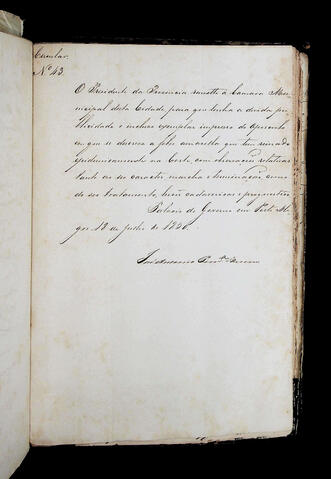 Circular
Nº 43.
O Presidente da Provincia remette á Camara Mu-
nicipal desta Cidade para que tenha a devida pu-
blicidade o incluso exemplar impresso do
em que se descreve a febre amarella que tem reinado
epidemicamente na Corte com observações relativas
tanto ao seu caracter, marcha e terminação como
de seu tratamento,
Palacio do Governo em Porto Ale-
gre 18 de Julho de 1850.